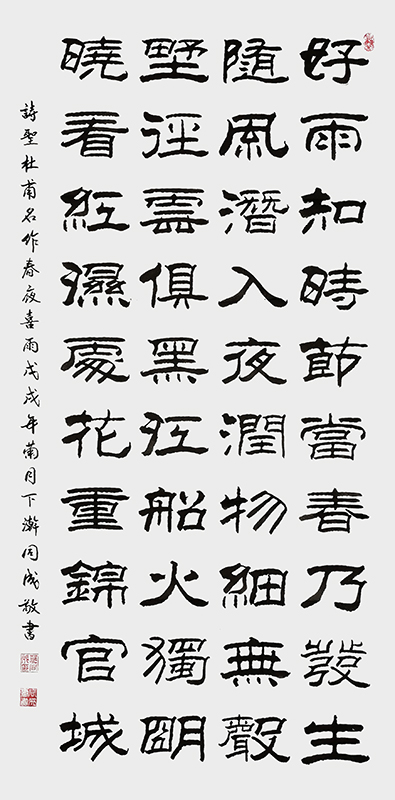 好雨知時節當春乃發生
隨風潛入夜潤物細無聲
野徑雲俱黑江船火獨明
曉看紅濕處花重錦官城
詩聖杜甫名作春夜喜雨戊戌年菊月下澣同成敬書